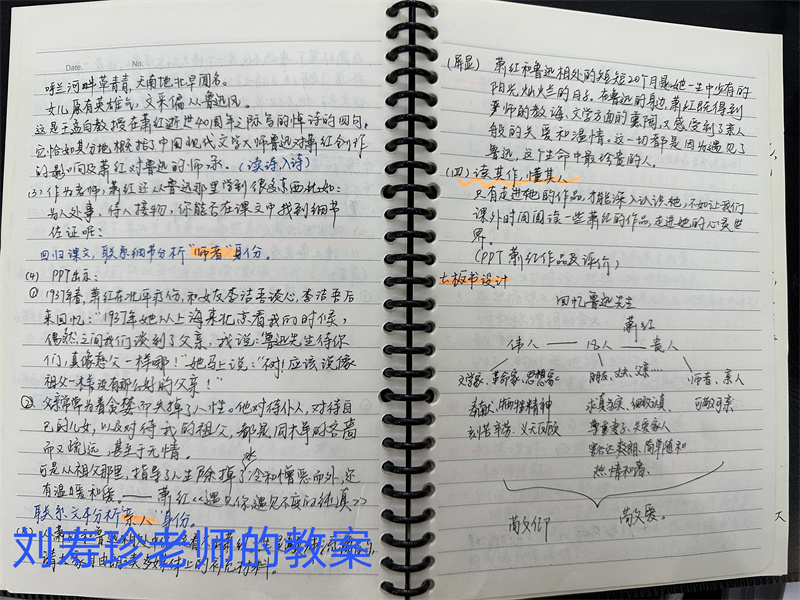 Date. No.
呼兰河畔草青青,天南地北早闻名。
女儿原有英雄气,文采偏从鲁迅风。
这是孟向教授在萧红逝世40周年之际写的悼诗的四句,
它恰如其分地概括了中国现代文学大师鲁迅对萧红创作
的影响及萧红对鲁迅的师承。(读诗入诗)
(3)作为老师,萧红还从鲁迅那里学到很多东西,比如:
为人处事、待人接物,你能否在课文中找到细节
佐证呢?
回归课文,联系细节分析"师者"身份。
(4) PPT出示:
① 1937年春,萧红在北平访份,和女友李洁吾谈心,李洁吾后
来回忆:"1937年她从上海来北京看我的时候,
偶然之间我们谈到了父亲,我说:'鲁迅先生待你
们,真像慈父一样哪!'她马上说:'不对!应该说像
祖父一样,没有那么好的父亲!'
② 父亲常常为着贪婪而失掉了人性。他对待仆人,对待自
己的儿女,以及对待我的祖父,都是同样的吝啬
而又疏远,甚至于无情。
可是从祖父那里,指导了人生除掉了冰冷和憎恶而外,还
有温暖和爱。——萧红《遇见你遇见不变的纯真》
联系文本分析"亲人"身份。
刘寿珍老师的教案
(屏显) 萧红和鲁迅相处的短短20个月是她一生中少有的
阳光灿烂的日子。在鲁迅的身边,萧红既得到
严师的教诲、文学方面的熏陶,又感受到了亲人
般的关爱和温情。这一切都是因为遇见了
鲁迅,这个生命中最珍贵的人。
(四)读其作,懂其人
只有走进她的作品,才能深入认识她,不如让我们
课外时间阅读一些萧红的作品,走进她的心灵世
界。
(PPT 萧红作品及评价)
七板书设计
回忆鲁迅先生
萧红
伟人——凡人——贵人
文学家、革命家、思想家 朋友、丈夫、父亲…… 师者、亲人
奉献、牺牲精神 求真务实、细致认真、 可敬可亲
刻苦辛劳、义无反顾 尊重妻子、关爱家人
豁达爽朗、简单随和
热情和蔼、
萌文仰 萌父爱。